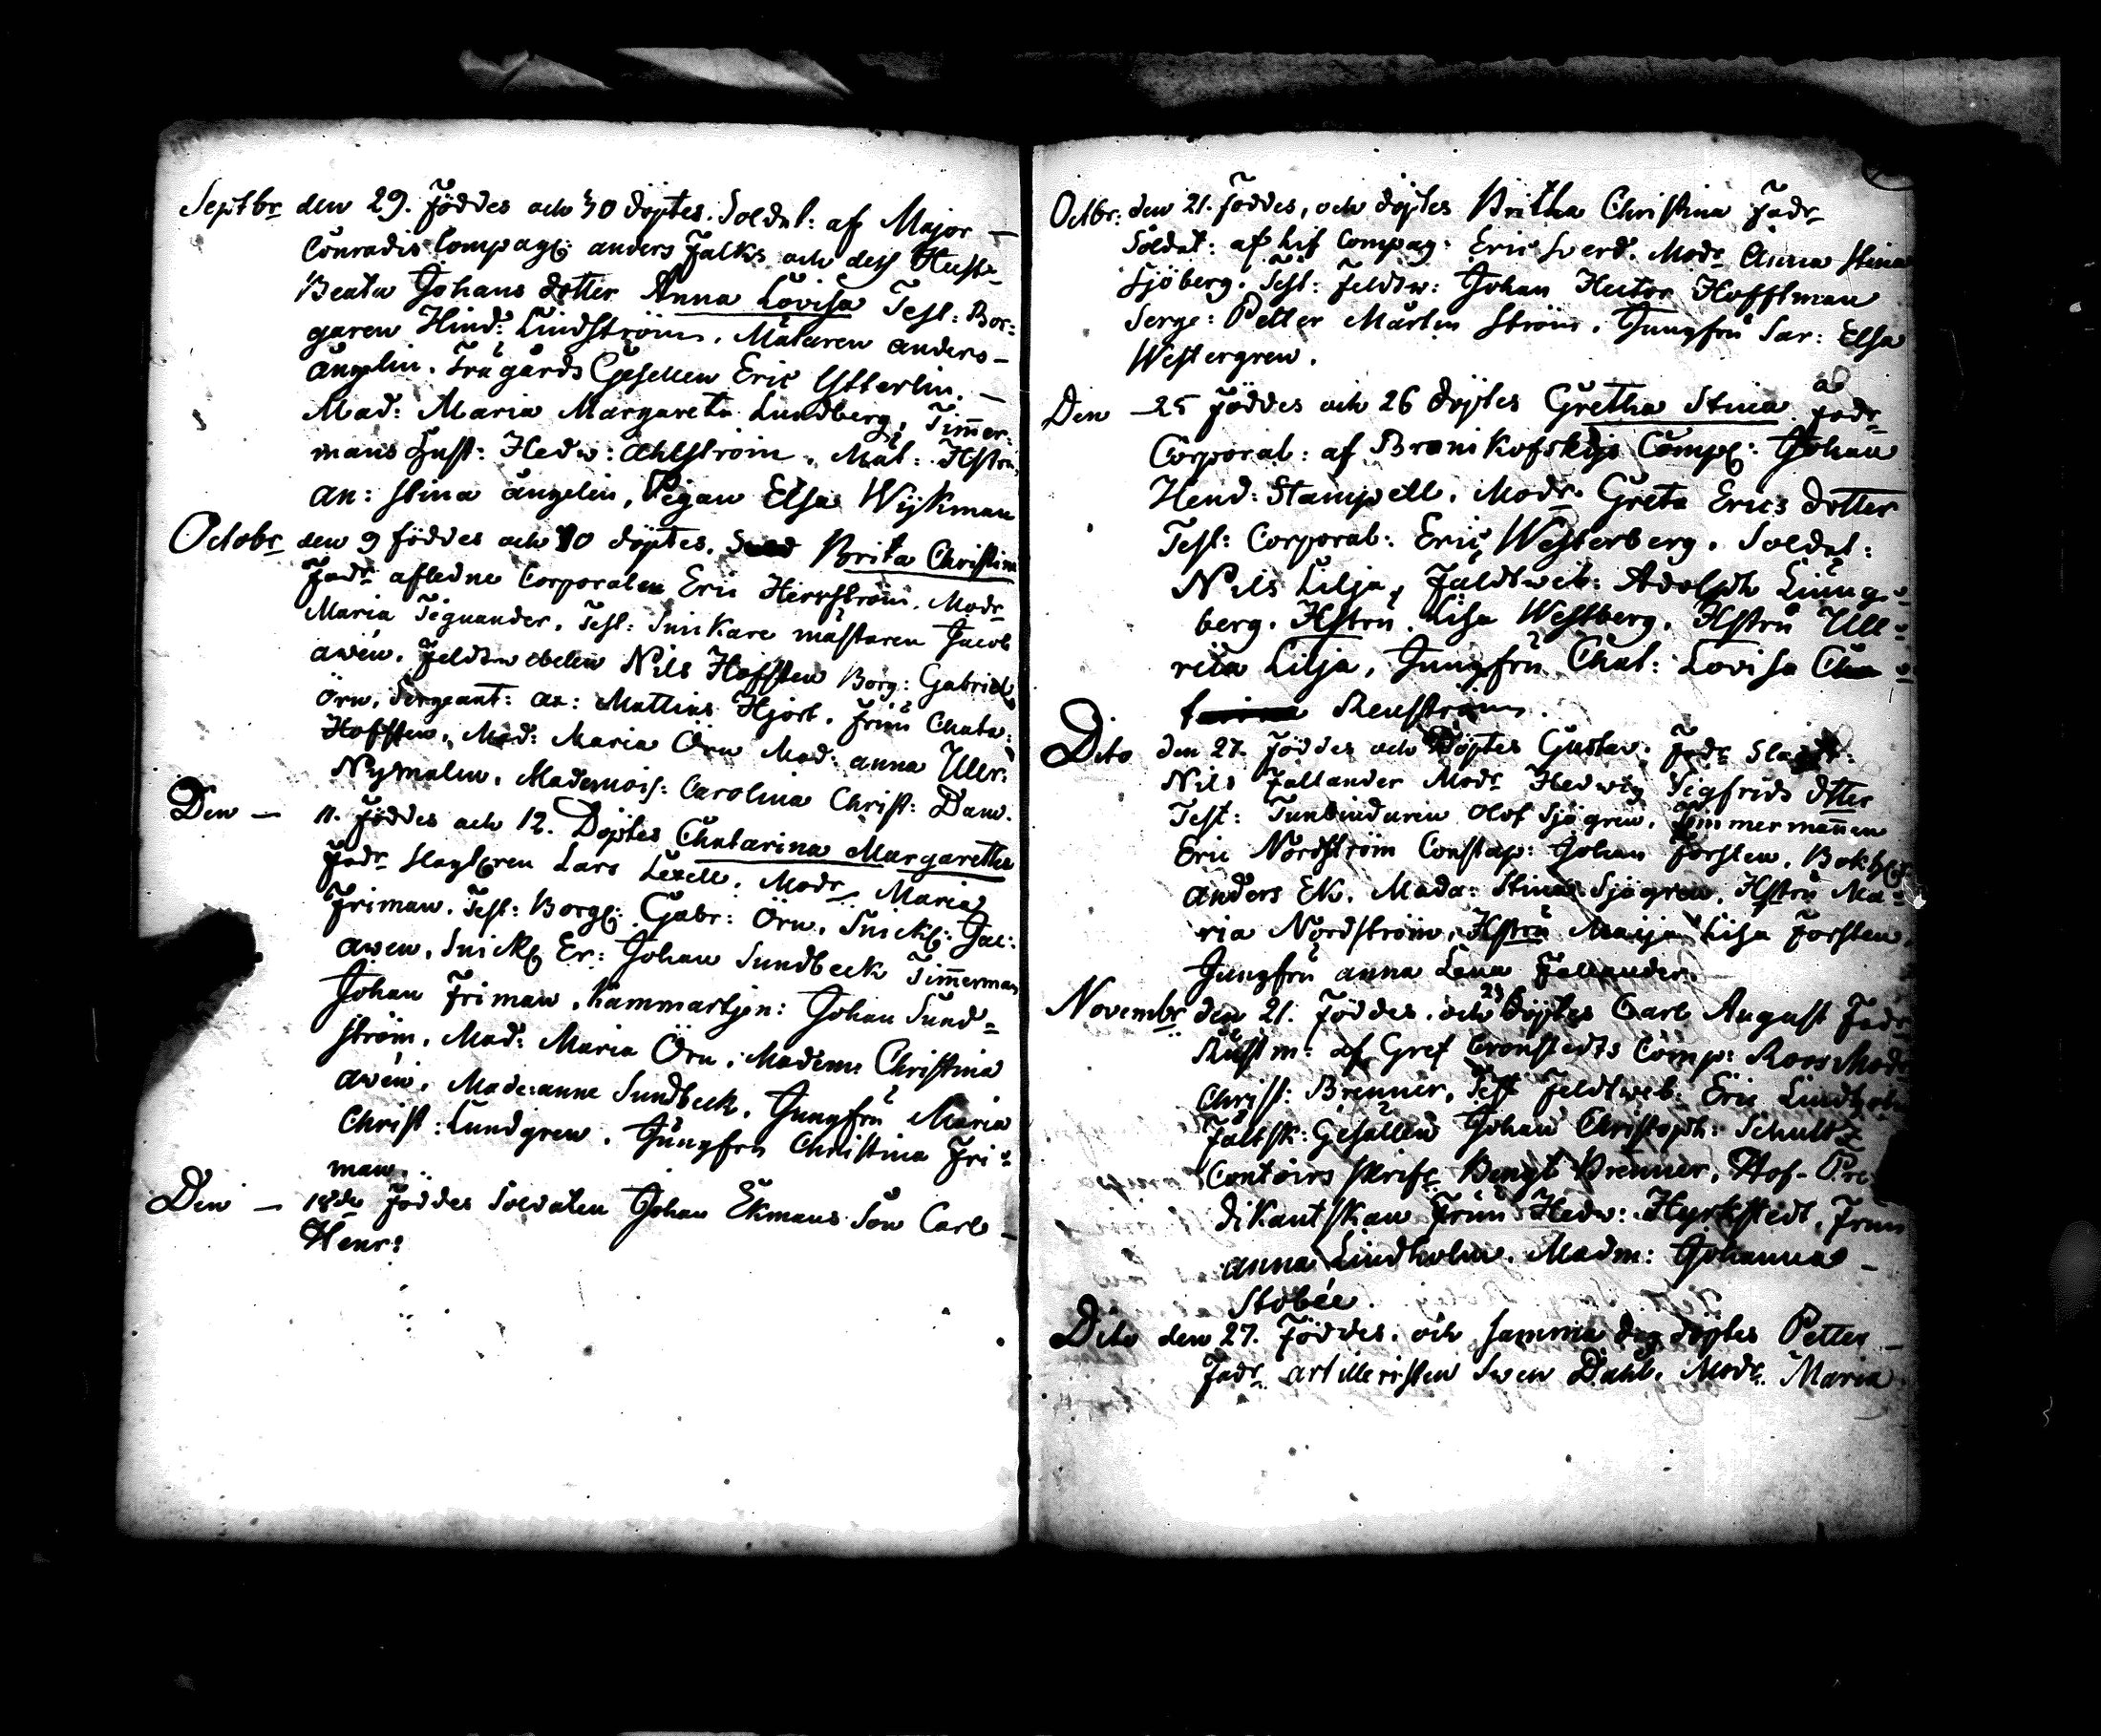 Septbr den 29. Föddes och 30 döptes. Soldat: af Major —
Conradis Compag: anders Falks och dess Hustr
Beata Johans dotter Anna Lovisa Test: Bor=
garen Hind: Lindström, Målaren anders —
ängelin. Trägårds Gesellen Eric Ytterlin. —
Mad: Maria Margareta Lundberg, Timmer=
mans Hust: Hedw: Ahlström, Mål: Hstru
an: Stina ängelin, Pigan Elsa Wijkman
Octobr den 9 föddes och 10 döptes. Brita Christina
Fadr afledne Corporalen Eric Herrström. Modr
Maria Tegnander. Test: Snickare mästaren Jacob
awén. Feldtwebelen Nils Hoffsten Borg: Gabriel
Örn, Sergeant: ax: Mattias Hjort. Fruu Chata:
Hoffsten, Mad: Maria Örn Mad: anna Ullr:
Nymalm. Mademois: Carolina Christ: Dani.
Den — 11. Föddes och 12. Döptes Chatarina Margaretha
Fadr Slagtren Lars Lexell. Modr Maria
Friman. Test: Borg: Gabr: Örn, Snick: Jac:
awen, Snick Er: Johan Sundbeck Timmerman
Johan Friman. Kammartjen: Johan Sund=
ström, Mad: Maria Örn. Madem: Christina
awén. Made: anne Sundbeck. Jungfru Maria
Christ: Lundgren. Jungfru Christina Fri=
man.
Den — 18de Föddes Soldaten Johan Ekmans Son Carl —
Henr:
Octbr: den 21. Föddes, och döptes Britha Christina Fadr
Soldat: af Lif Compag: Eric Sverd. Modr Anna Stina
Sjöberg. Test: Feldtw: Johan Hector Hoffman
Serge: Petter Martin Ström. Jungfru Sar: Elsa
Westergren.
Den — 25 Föddes och 26 döptes Gretha Stina Fadr
Corporal: af Branikofskijs Comp: Johan
Hend: Stampell. Modr Greta Erics dotter
Test: Corporal: Eric Westerberg. Soldat:
Nils Lilja, Fäldtweb: Adolph Liung=
berg. Hstru Lisa Westberg. Hstru Ull=
rica Lilja, Jungfru Chat: Lovisa
Renström.
Dito den 27. Föddes och Döptes Gustav. Fadr
Nils Fallander Modr Hedwig Sigfrids dtter
Test: Tunbinduren Olof Sjögren, Timmermannen
Eric Nordström Constap: Johan Forsten. Bokh:
anders Ek. Mada: Stina Sjögren. Hstru Ma=
ria Nordström. Hstru Maija Lisa Forsten.
Jungfru anna Lena Fallander.
Novembr den 21. Föddes. och 23 Döptes Carl August Fadr
Rustm: af Gref Cronstedts Comp: Roos Modr
Christ: Brenner. Test Feldtweb: Eric Lindholm
Fältsk: Gesällen Johan Christoph: Schultz
Contoirs Skrifr Bengt Brenner. Hof-Pre
dikantskan Fruu Hedw: Hyrkstedt. Fruu
anna Lindholm. Madm: Johanna —
Stobée.
Dito den 27. Föddes. och samma dag döptes Petter —
Fadr artilleristen Swen Dahl. Modr Maria